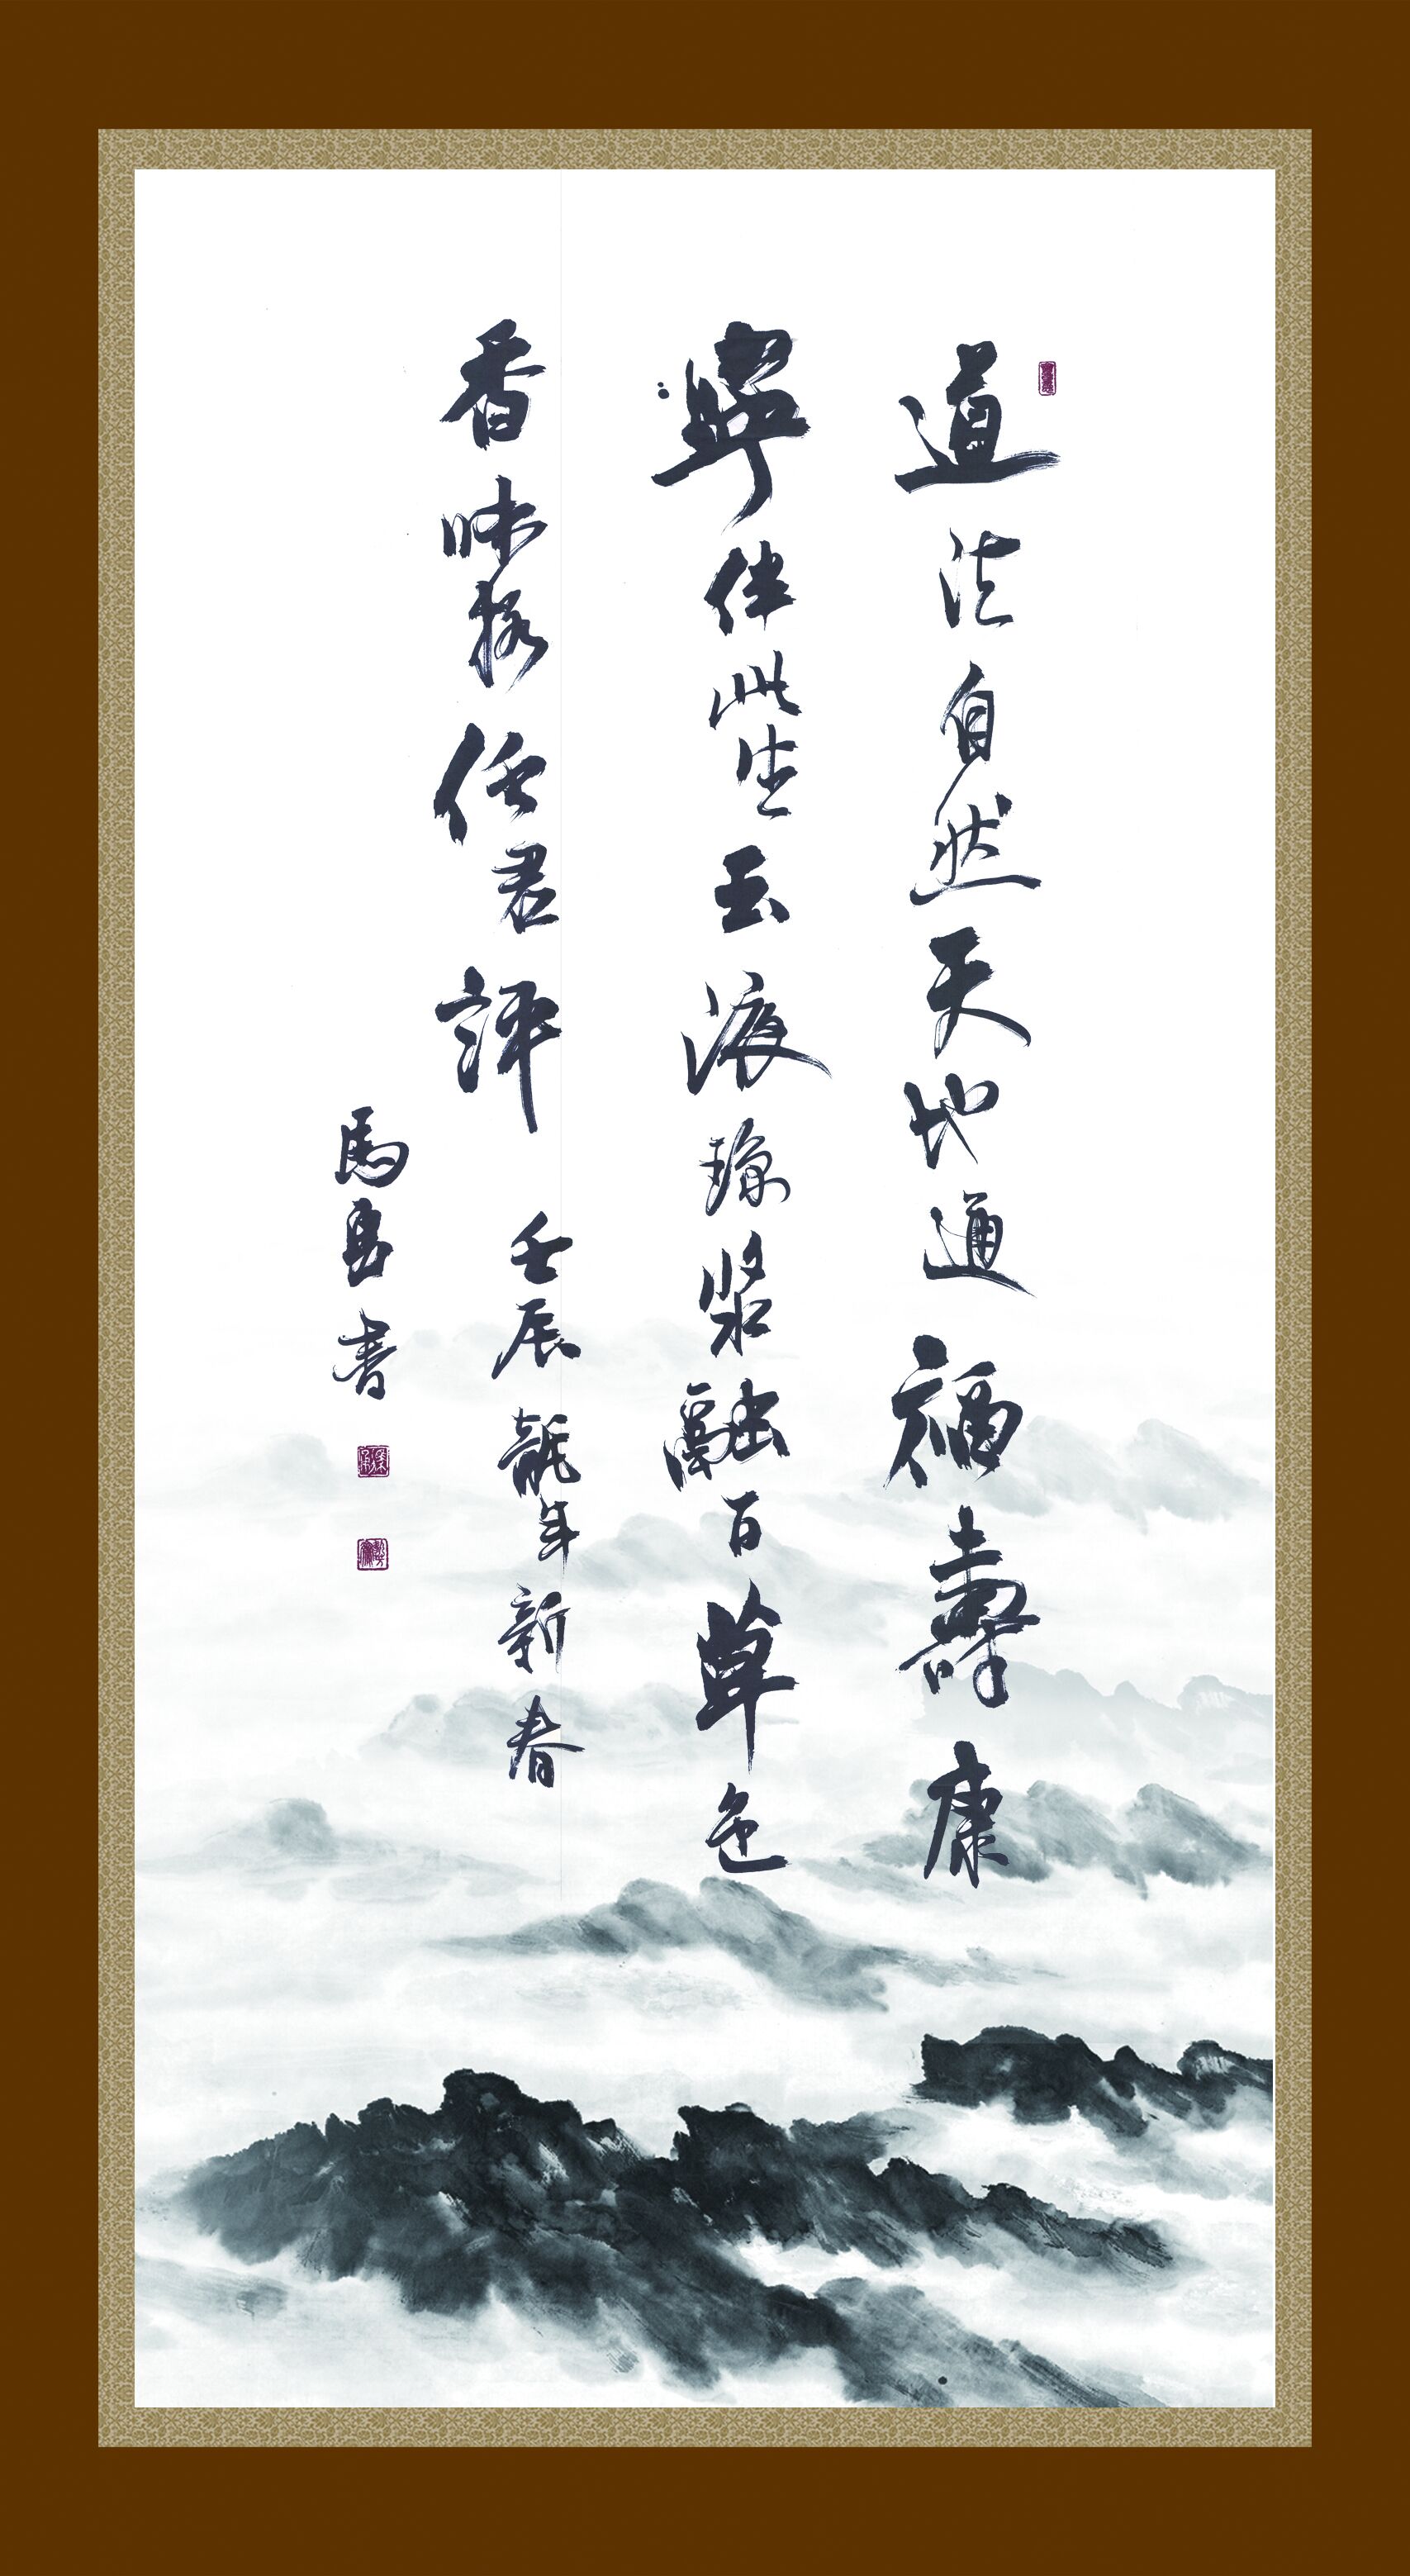 道法自然天地通福壽康
寧伴此生玉液瓊漿融百草色
香味格任君評
壬辰龍年新春
馬勇書